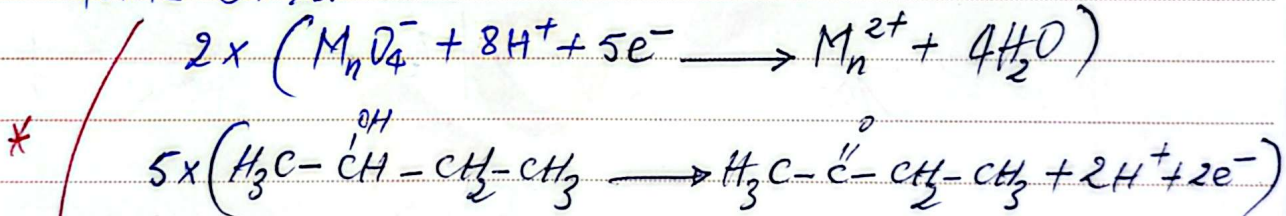 2x (MnO4⁻ + 8H⁺ + 5e⁻ ⟶ Mn²⁺ + 4H2O)
OH O
* 5x (H3C - CH - CH2 - CH3 ⟶ H3C - C - CH2 - CH3 + 2H⁺ + 2e⁻)